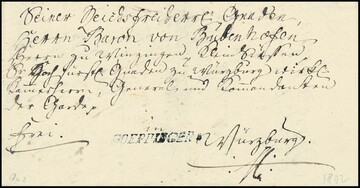 Seiner Reichsfreiherrl. Gnaden,
Herrn Baron von Bubenhofen
Herrn zu Winzingen, Klein Süssen
Sr. Hochfürstl. Gnaden zu Würzburg wirkl.
Kammerherrn, General und Komandanten
der Garden
frei.
GOEPPINGEN
Würzburg.
1802